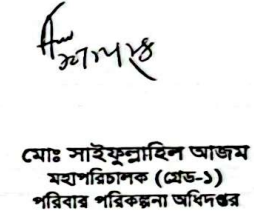 মোঃ সাইফুল্লাহিল আজম
মহাপরিচালক (গ্রেড-১)
পরিবার পরিকল্পনা অধিদপ্তর